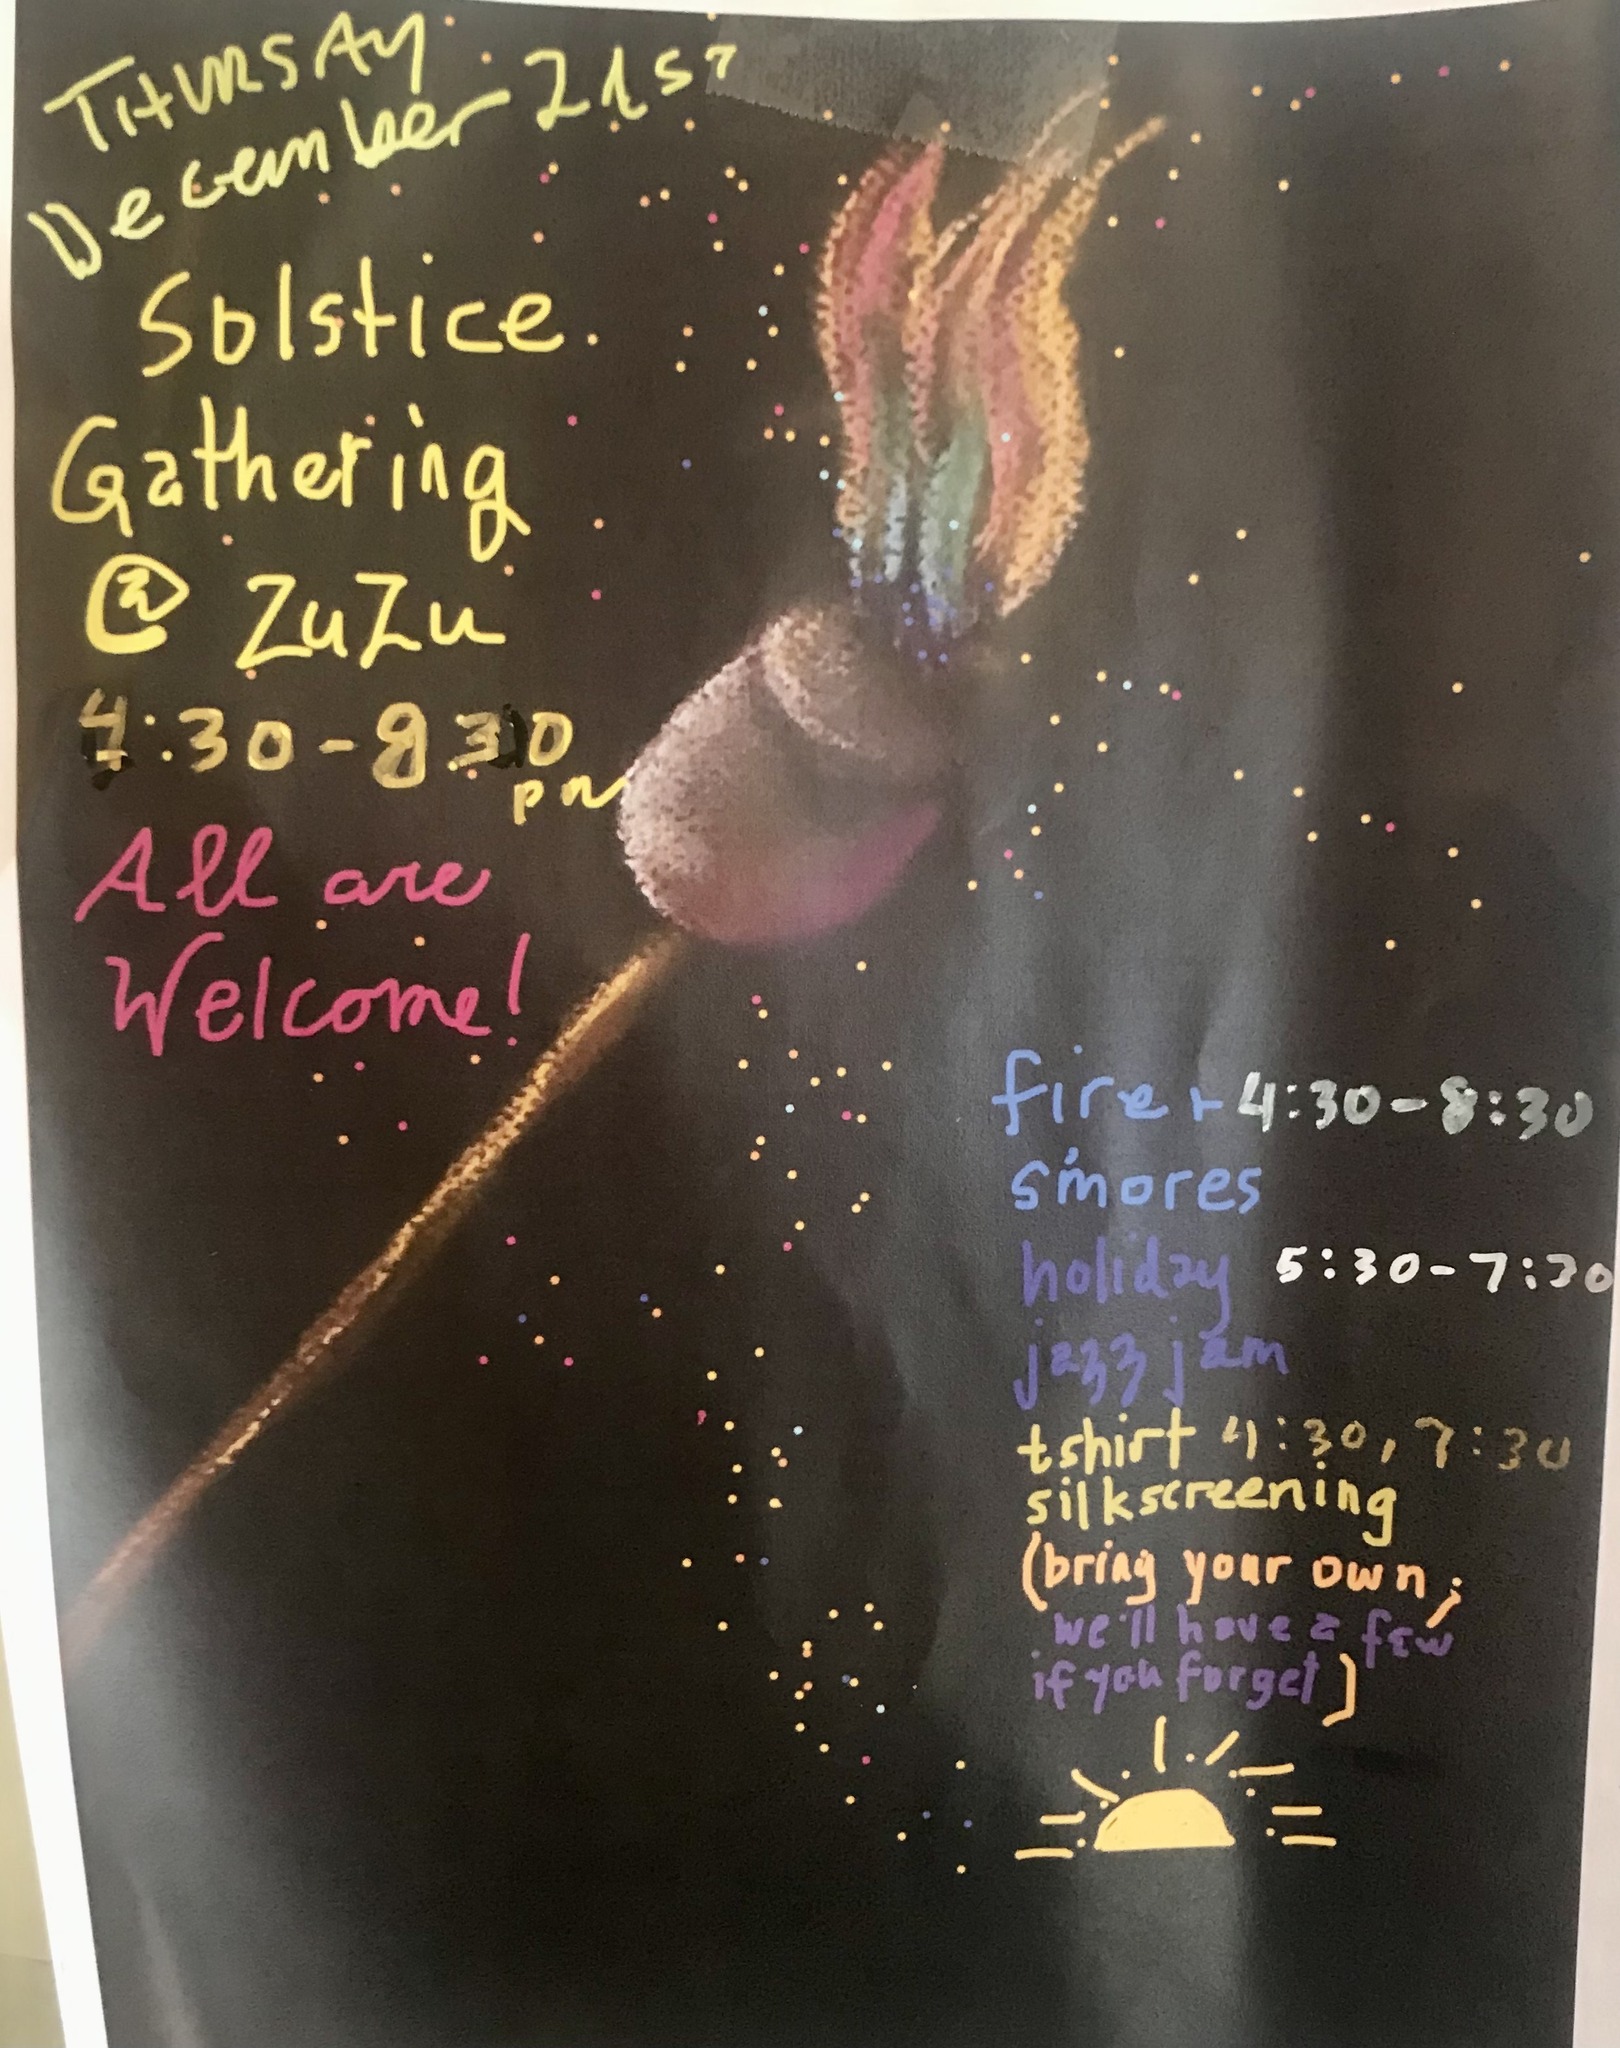 THURSDAY
December 21st
Solstice
Gathering
@ ZuZu
4:30-8 30
pm
All are
Welcome!
fire + 4:30-8:30
s'mores
holiday 5:30-7:30
jazz jam
tshirt 4:30, 7:30
silkscreening
(bring your own;
we'll have a few
if you forget)